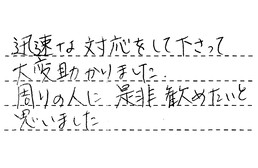 迅速な対応をして下さって
大変助かりました.
周りの人に是非歓めたいと
思いました